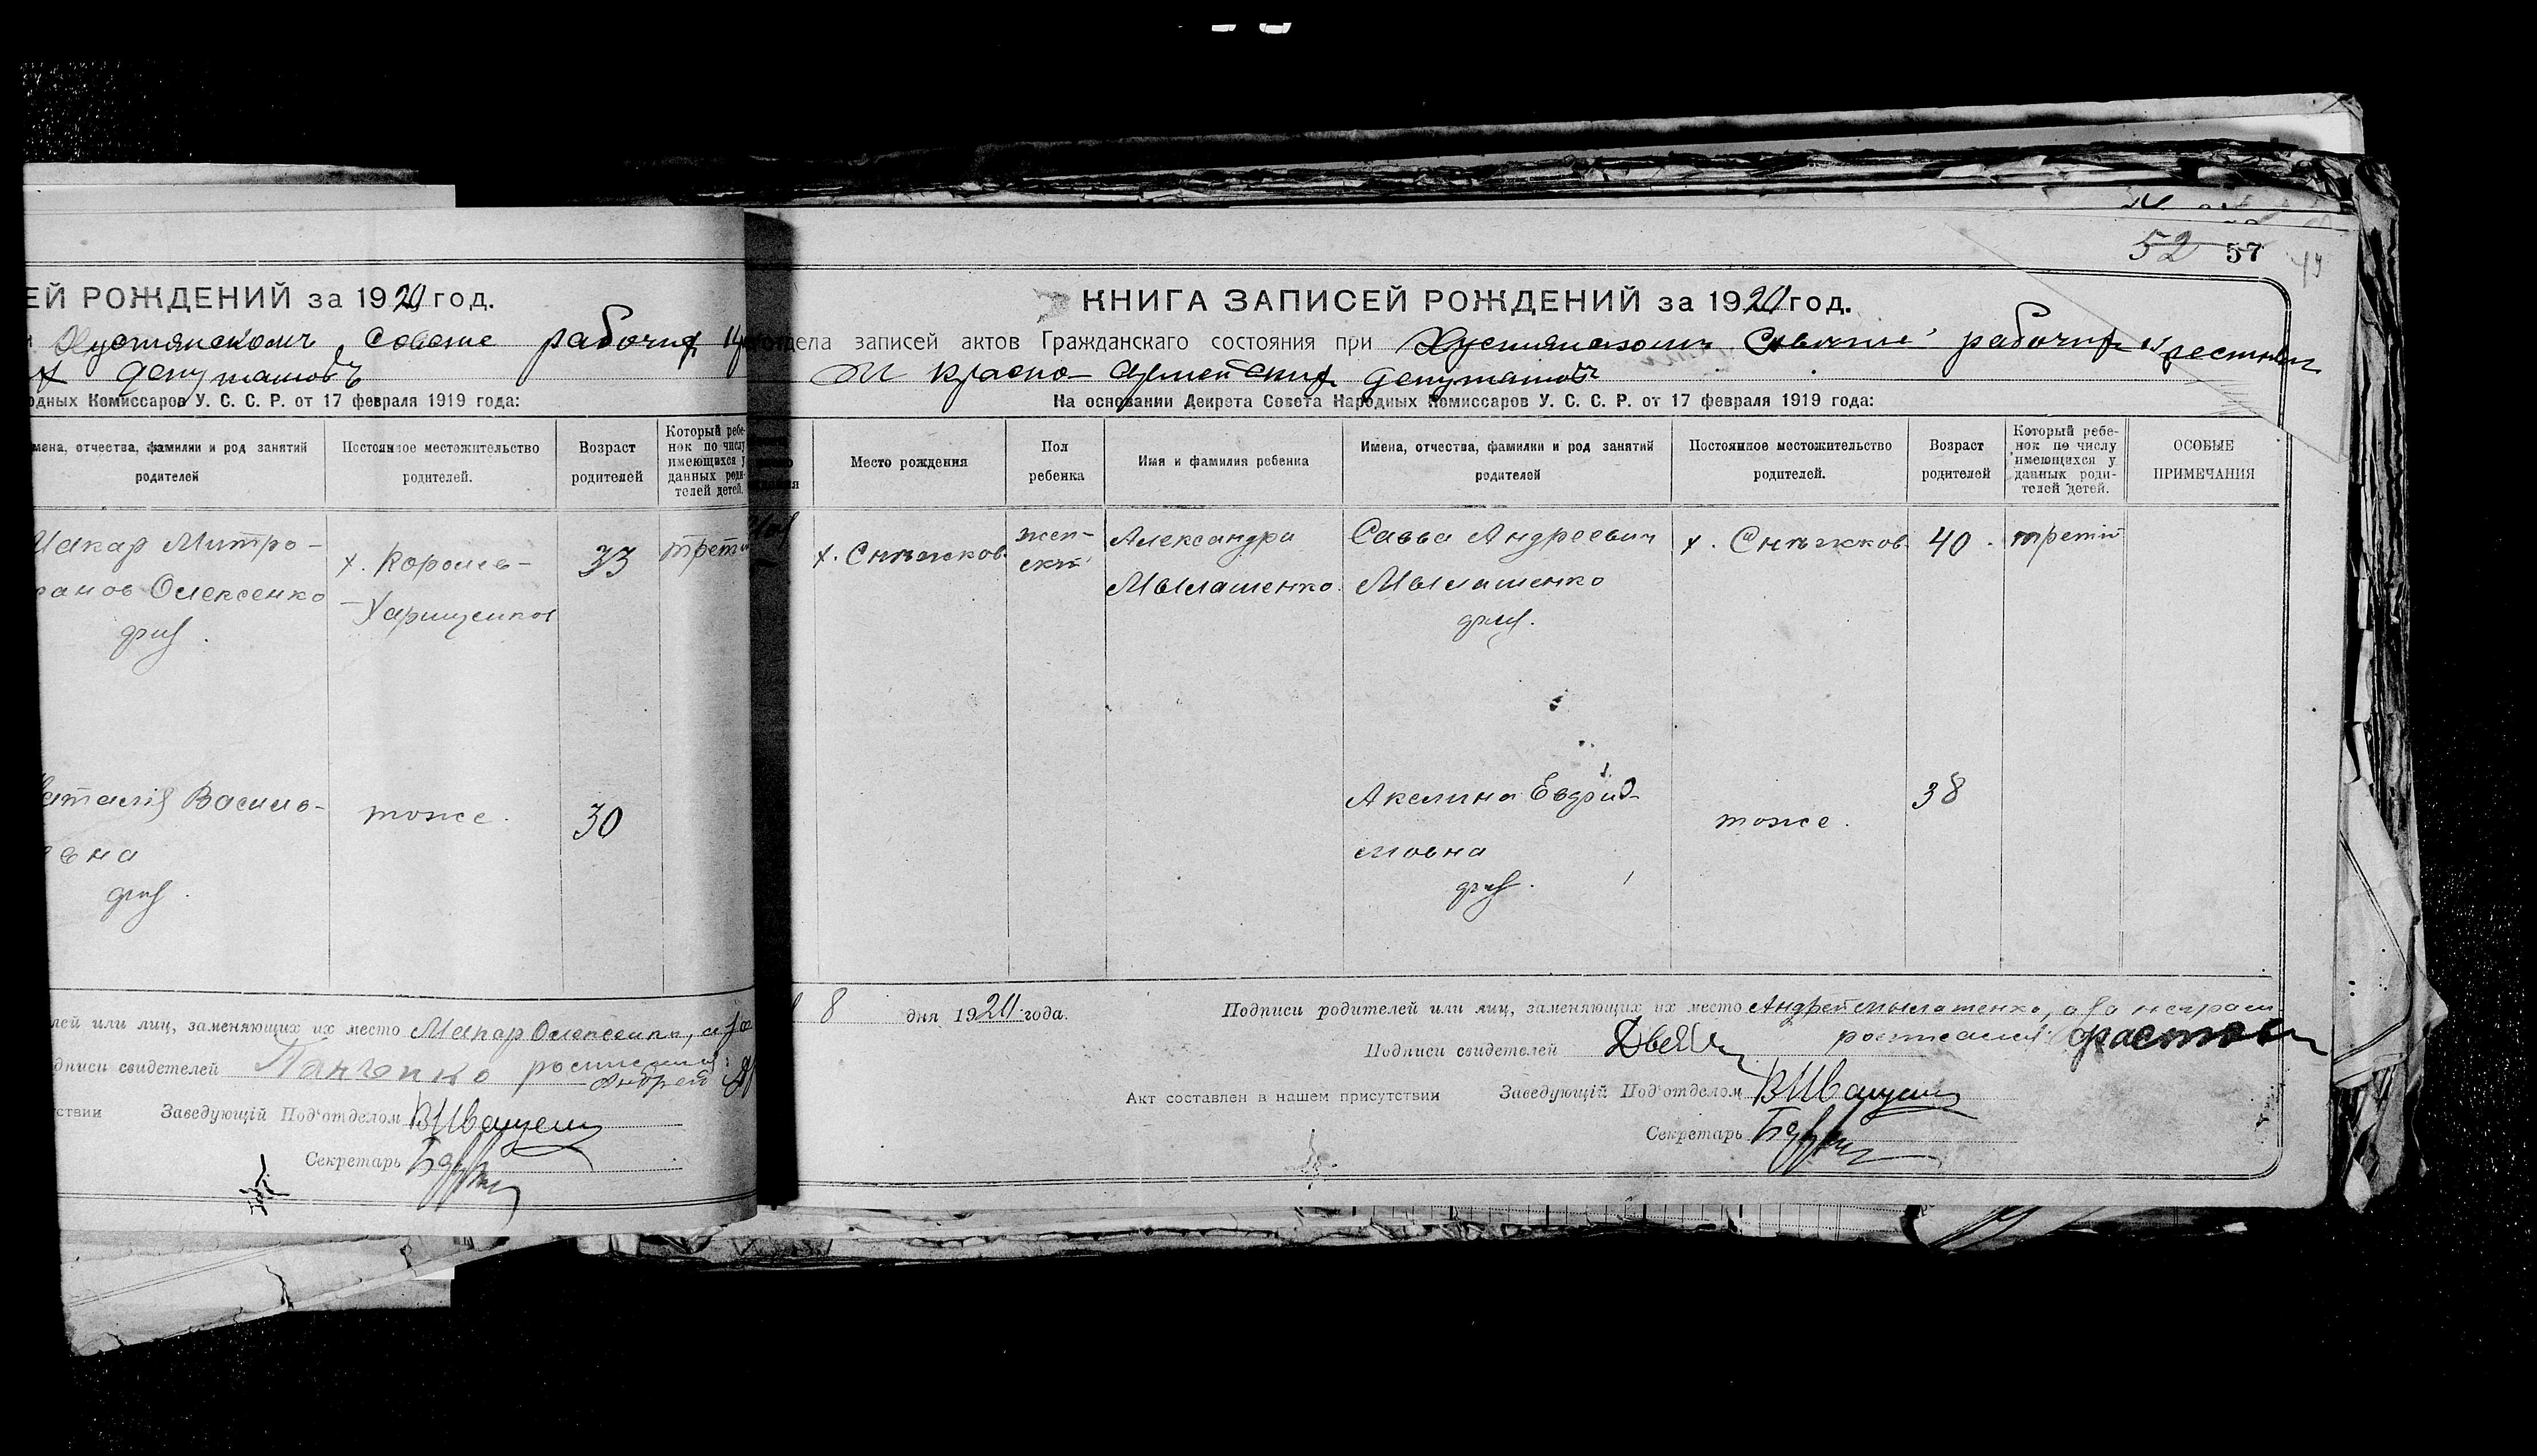 ЕЙ РОЖДЕНИЙ за 1920 год.
Хустянскомъ Совете рабочих
депутатовъ
одных Комиссаров У. С. С. Р. от 17 февраля 1919 года:
мена, отчества, фамилии и род занятий родителей
Постоянное местожительство родителей.
Возраст родителей
Который ребенок по числу имеющихся у данных родителей детей.
Макар Митро-
фанов Олексенко
х. Королев-
-Харищенков
33
трети
Наталія Василь-
евна
тоже.
30
лей или лиц, заменяющих их место Макар Олексенко, а
дписи свидетелей Панченко
Андрей
ствии Заведующій Под'отделом
Секретарь
52 57
КНИГА ЗАПИСЕЙ РОЖДЕНИЙ за 1920 год.
отдела записей актов Гражданскаго состояния при Хустянскомъ Совете рабочих крестьян
и красно-армейских депутатовъ
На основании Декрета Совета Народных Комиссаров У. С. С. Р. от 17 февраля 1919 года:
Место рождения
Пол ребенка
Имя и фамилия ребенка
Имена, отчества, фамилии и род занятий родителей
Постоянное местожительство родителей.
Возраст родителей
Который ребенок по числу имеющихся у данных родителей детей.
ОСОБЫЕ ПРИМЕЧАНИЯ
х. Снѣжков.
жен-
скій
Александра
Мылашенко.
Савва Андреевич
Мылашенко
х. Снѣжков.
40.
третій
Акелина Евфи-
мовна
тоже.
38
8 дня 1920 года.
Подписи родителей или лиц, заменяющих их место Андрей Мылашенко, а за неграм
Подписи свидетелей
росписался
Акт составлен в нашем присутствии Заведующій Под'отделом
Секретарь